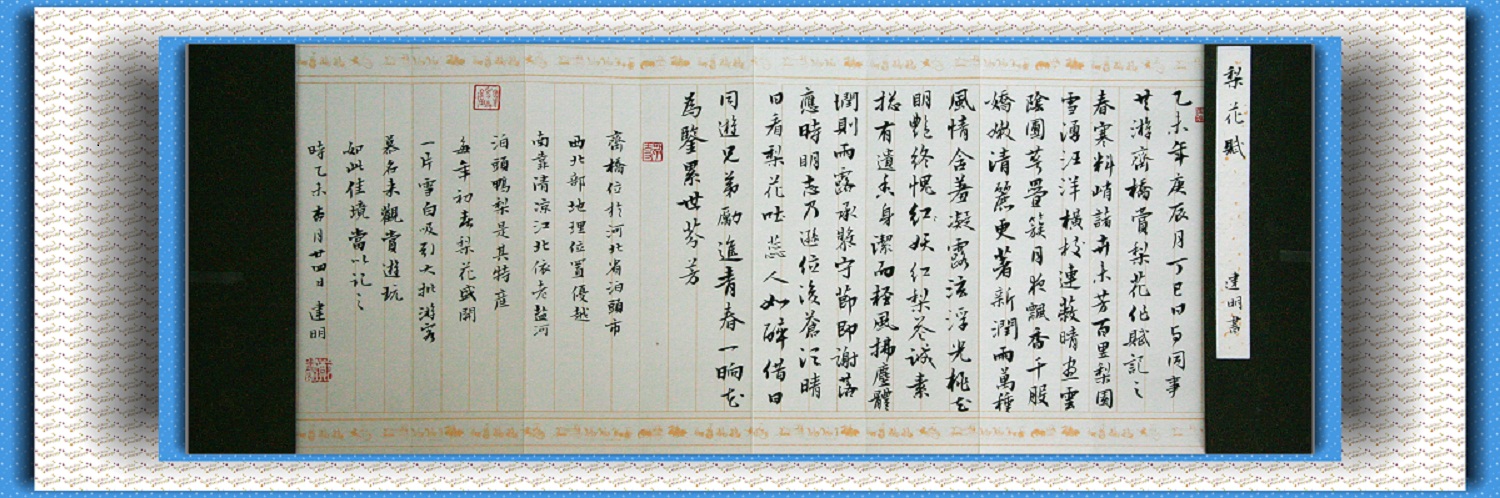 梨花賦
建明書
乙未年庚辰月丁巳日与同事
共游齊橋賞梨花作賦記之
春寒料峭諸卉未芳百里梨園
雪濤汪洋橫枝連蔽晴画雲
陰團萼疊簇月夜飄香千般
嬌嫩清麗更著新潤雨萬種
風情含羞凝露泫浮光桃花
明艷終愧紅妖紅梨蕊誠素
猶有遺香身潔而輕風掃塵體
潤則雨露承駿守節即謝落
應時明志乃遜位後蒼江晴
日看梨花吐蕊人如醉借日
同遊兄弟勵進青春一晌花
為鑒累世芬芳
齊橋位於河北省泊頭市
西北部地理位置優越
南靠清凉江北依老盐河
泊頭鴨梨是其特産
每年初春梨花盛開
一片雪白吸引大批游客
慕名来觀賞遊玩
如此佳境當以記之
時乙未杏月廿四日建明